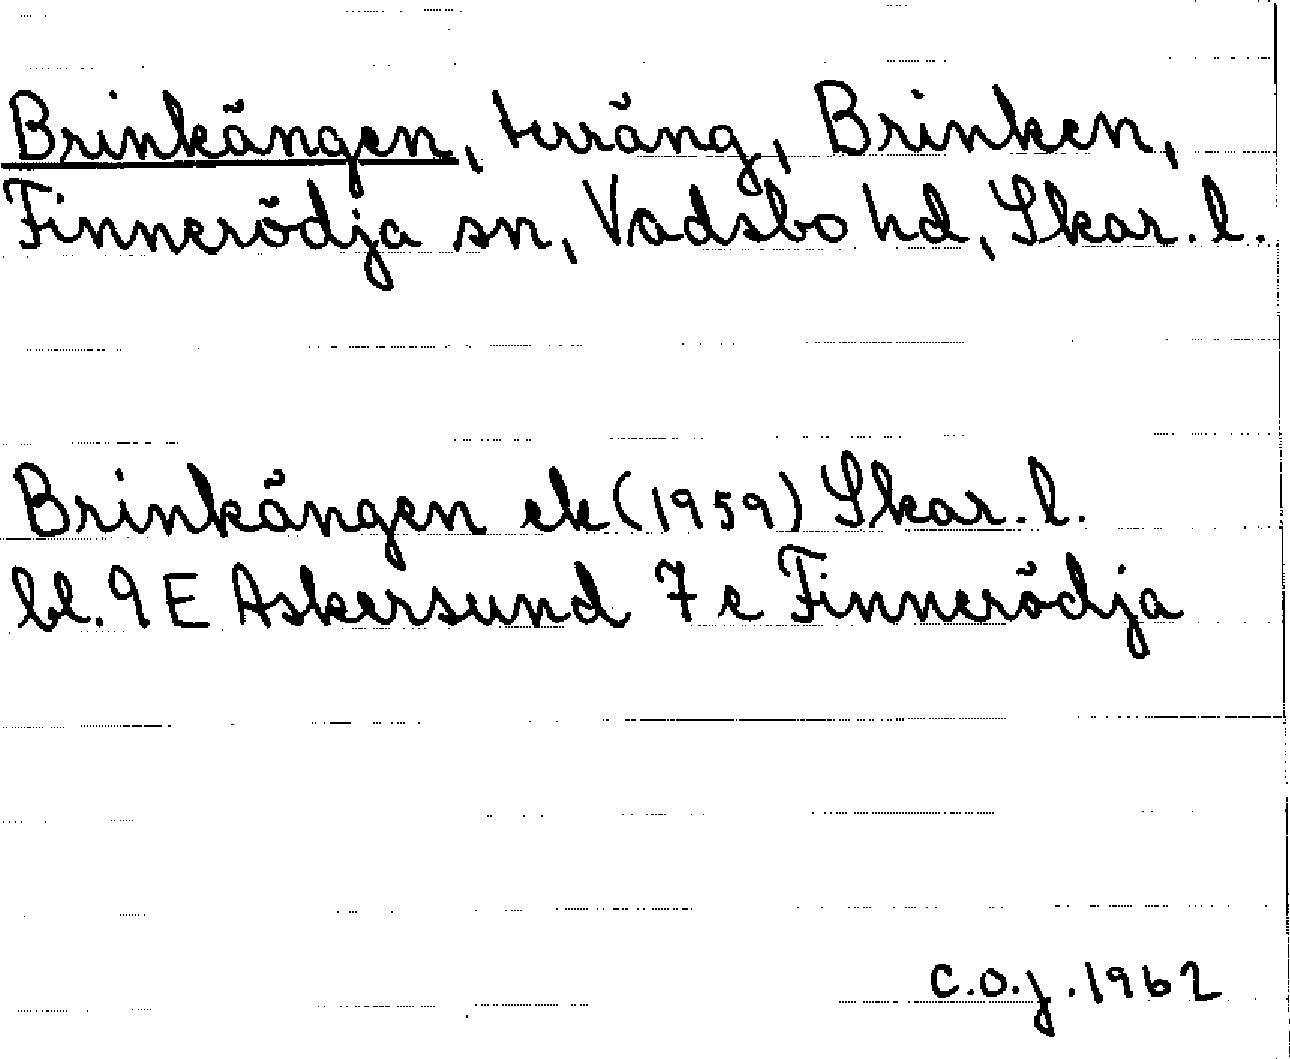 Brinkängen, terräng, Brinken,
Finnerödja sn, Vadsbo hd, Skar. l.
Brinkängen ek (1959) Skar. l.
bl. 9 E Askersund 7 e Finnerödja
C.O.J. 1962